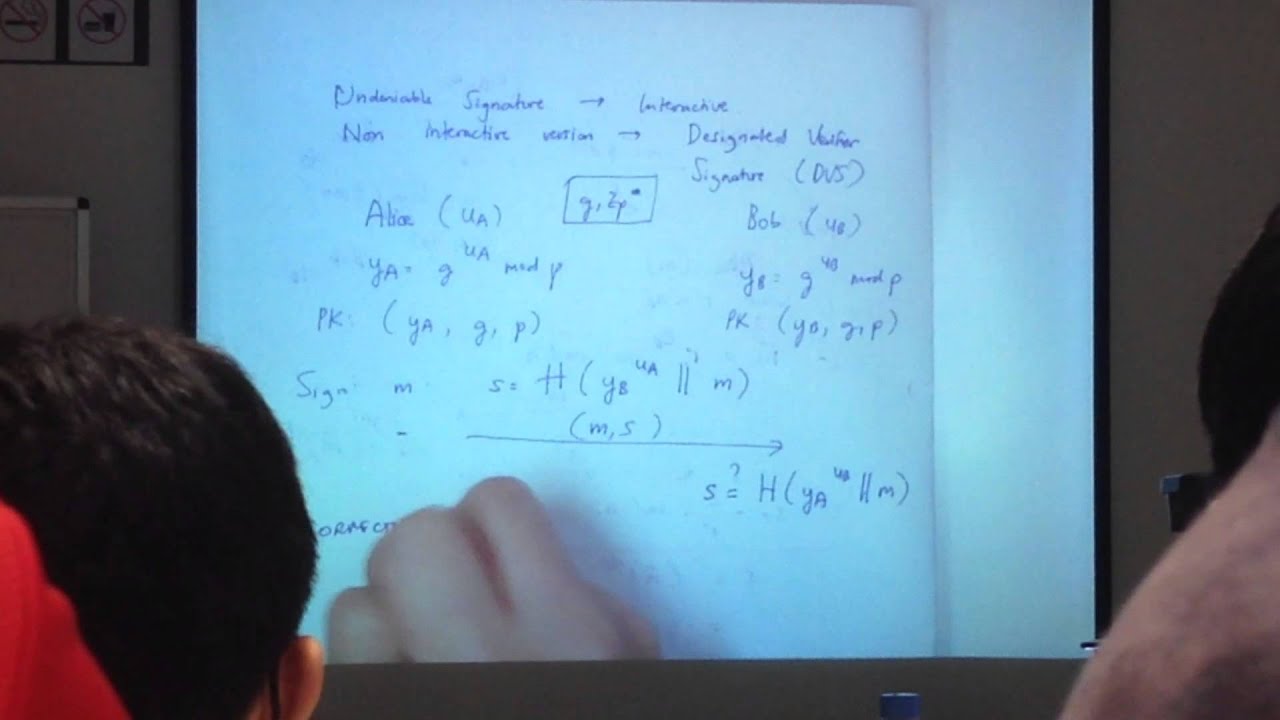 Undeniable Signature → Interactive
Non interactive version → Designated Verifier
Signature (DVS)
g, Zp*
Alice (uA) Bob (uB)
yA = g^uA mod p yB = g^uB mod p
PK: (yA, g, p) PK (yB, g, p)
Sign: m s = H(yB^uA || m)
- (m, s)
s ?= H(yA^uB || m)